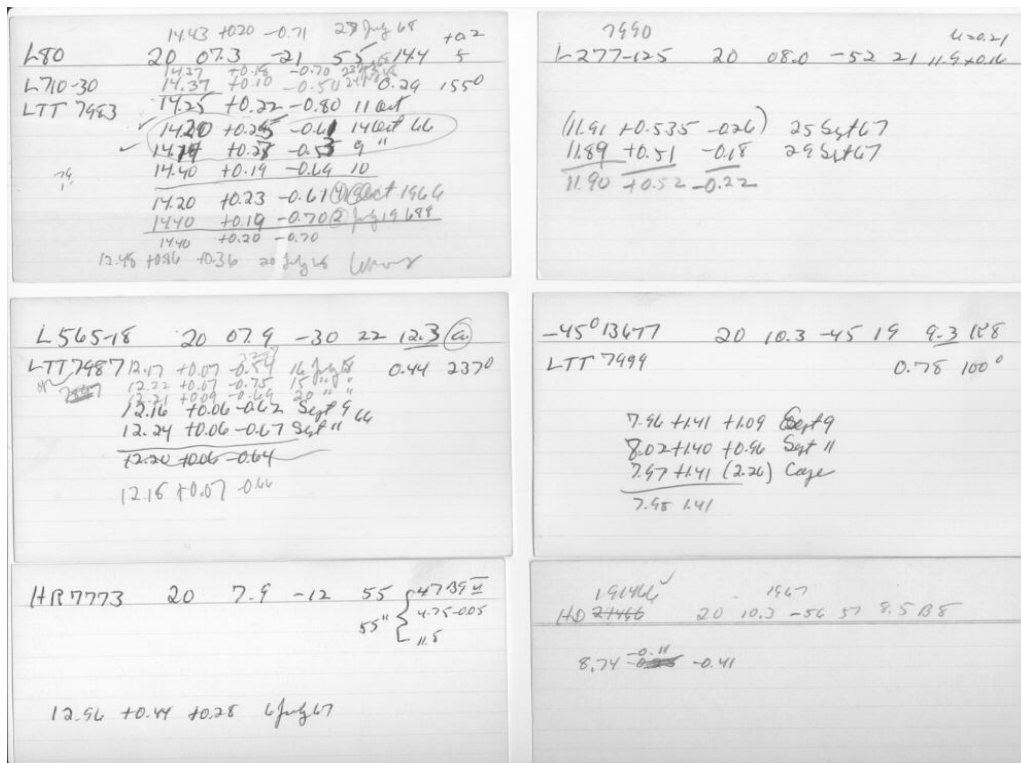 14.43 +0.20 -0.71 28 July 68
L80 20 07.3 -21 55 14.4 +a2 5
L710-30 14.27 +0.18 -0.70
14.37 +0.10 -0.50 0.29 155°
LTT 7983 14.25 +0.22 -0.80 11 Oct
14.20 +0.25 -0.61 14 Oct 66
9 "
14.40 +0.19 -0.69 10
14.20 +0.23 -0.61 Oct 1966
14.40 +0.19 -0.70 July 1968
14.40 +0.20 -0.70
12.48 +0.86 +0.36 20 July 68
7990
L277-125 20 08.0 -52 21 11.9 +0.16
μ=0.21
(11.91 +0.535 -0.26) 25 Sept 67
11.89 +0.51 -0.18 29 Sept 67
11.90 +0.52 -0.22
L565-18 20 07.9 -30 22 12.3 a
LTT 7987 12.17 +0.07 -0.54 16 July 68 0.44 237°
or 12.22 +0.07 -0.75 15 " "
12.21 +0.09 -0.69 20 " "
12.16 +0.06 -0.62 Sept 9 66
12.24 +0.06 -0.67 Sept 11 66
12.20 +0.06 -0.64
12.18 +0.07 -0.66
-45° 13677 20 10.3 -45 19 9.3 K8
LTT 7999 0.78 100°
7.96 +1.41 +1.09 Sept 9
8.02 +1.40 +0.96 Sept 11
7.97 +1.41 (2.26) Cape
7.98 1.41
HR7773 20 7.9 -12 55 4.7 B9 V
55" 4.75 -0.05
11.8
12.96 +0.44 +0.28 6 July 67
191466 1967
HD 21466 20 10.3 -56 57 8.5 B8
-0.11
8.74 -0.41